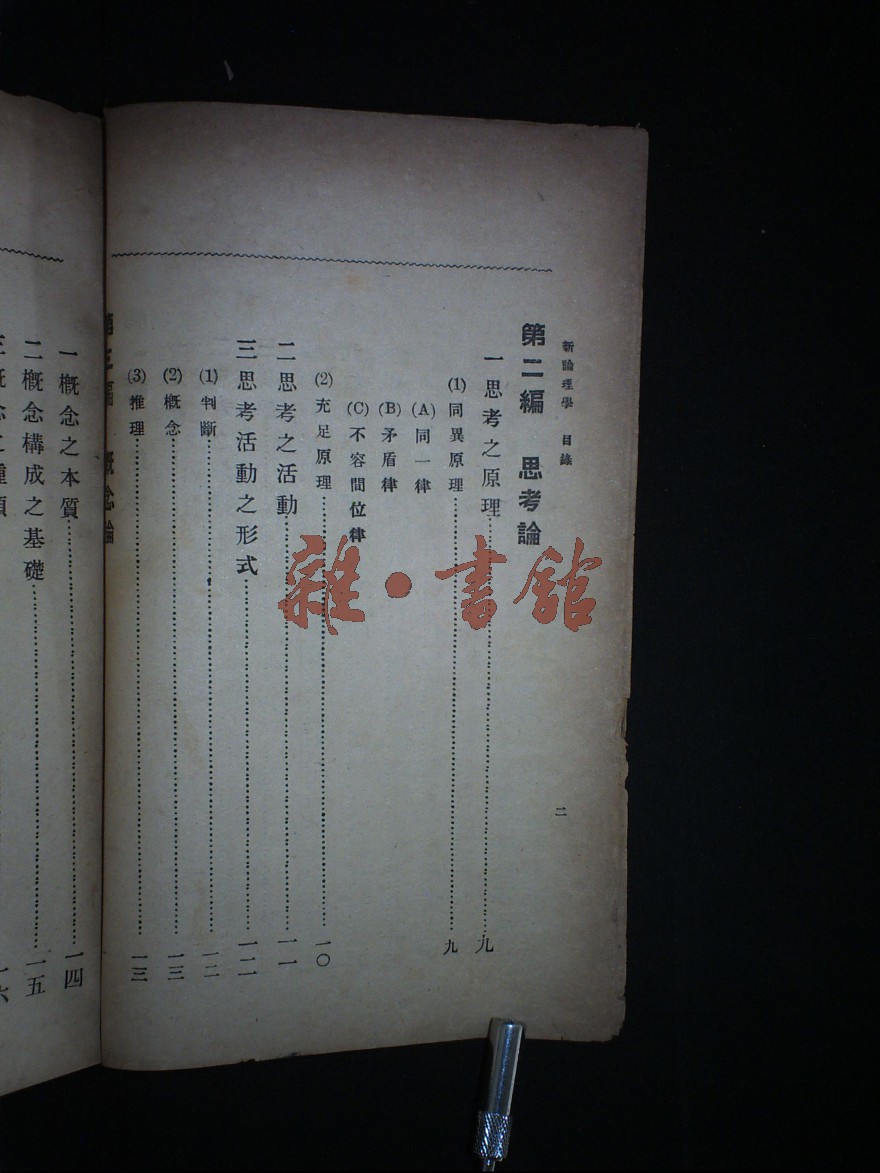 新論理學 目錄
二
第二編 思考論
一思考之原理……九
(1)同異原理……九
(A)同一律
(B)矛盾律
(C)不容間位律
(2)充足原理……一〇
二思考之活動……一一
三思考活動之形式……一二
(1)判斷……一二
(2)概念……一三
(3)推理……一三
第三編 概念論
一概念之本質……一四
二概念構成之基礎……一五
三概念之種類……一六
雜·書館